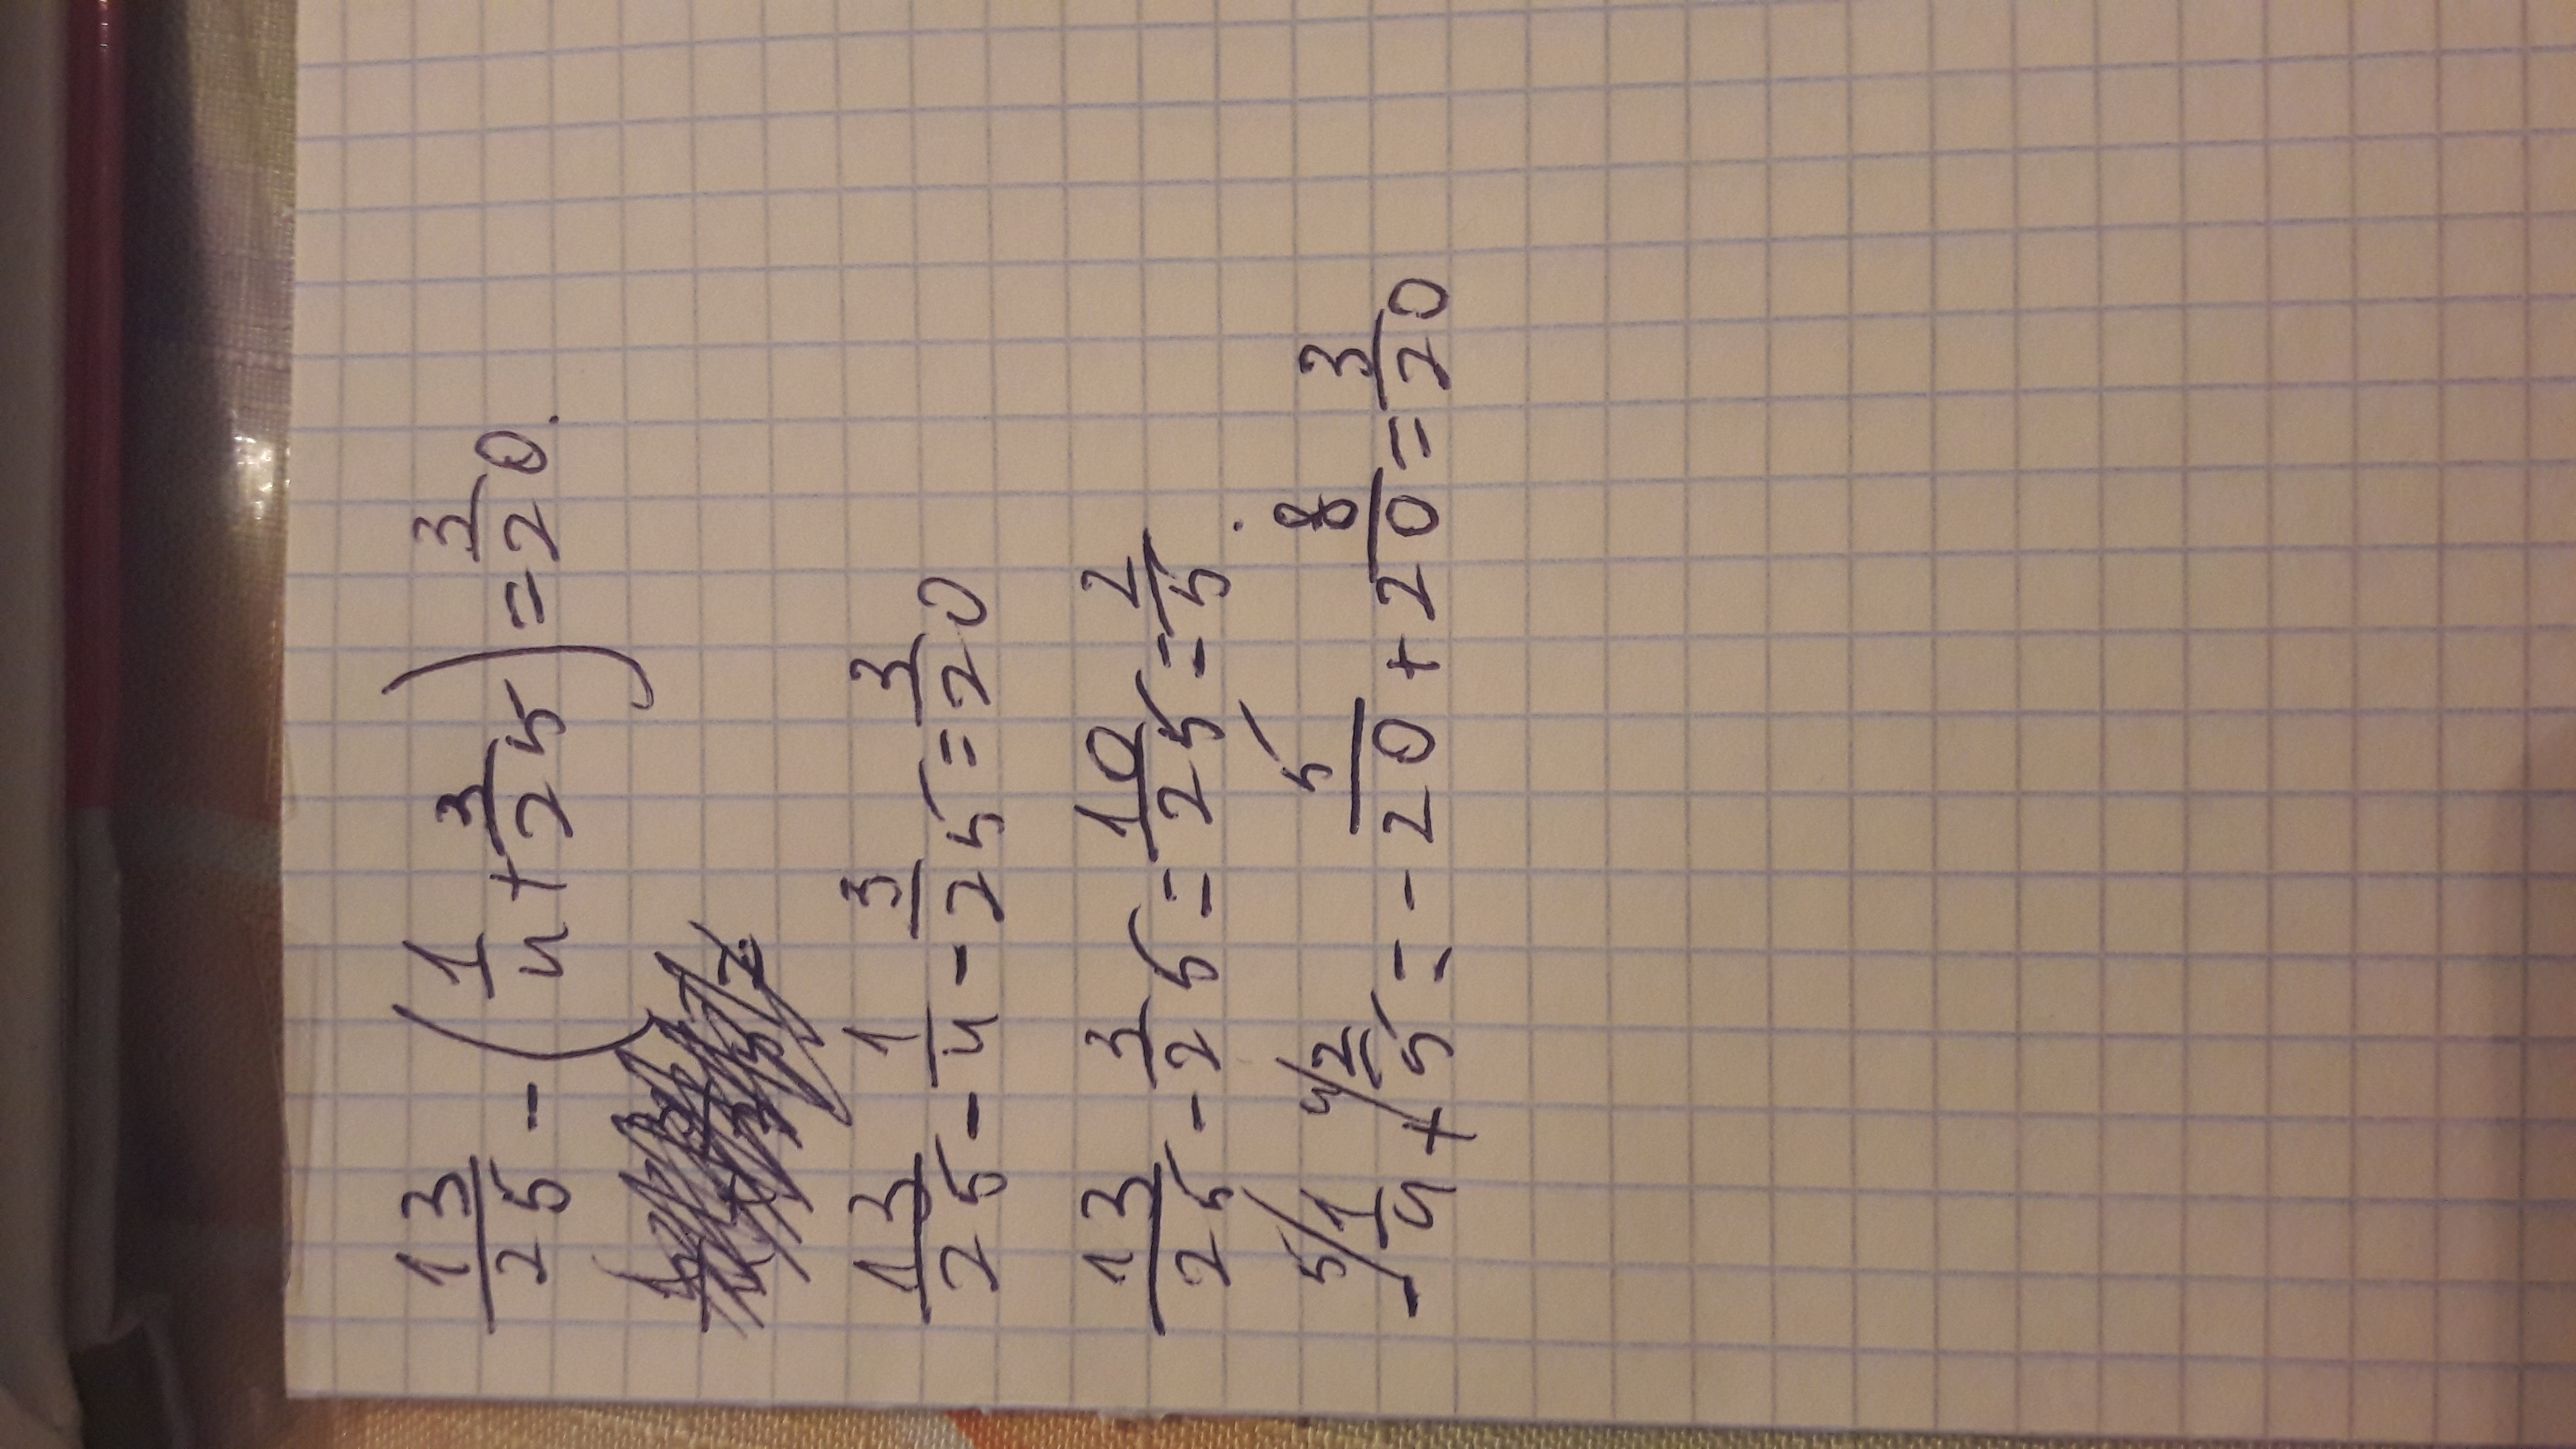 13/25 - (1/4 + 3/25) = 3/20.
13/25 - 1/4 - 3/25 = 3/20
13/25 - 3/25 = 10/25 = 2/5.
- 5/1/4 + 4/2/5 = - 5/20 + 8/20 = 3/20